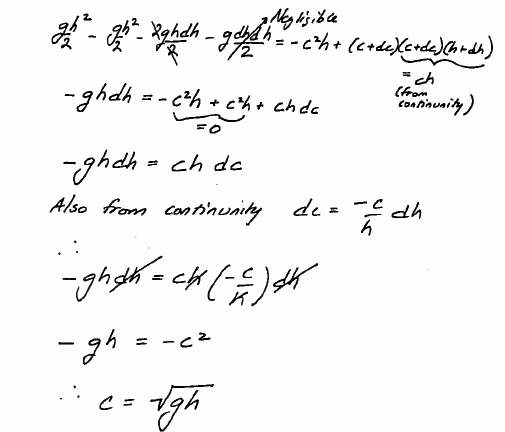 gh²/2 - gh²/2 - 2ghdh/2 - gdhdh/2 = -c²h + (c+dc)(c+dc)(h+dh)
Negligible
= ch
(from continunity)
-ghdh = -c²h + c²h + ch dc
= 0
-ghdh = ch dc
Also from continunity dc = -c/h dh
∴
-ghdh = ch (-c/h) dh
- gh = -c²
∴ c = √gh